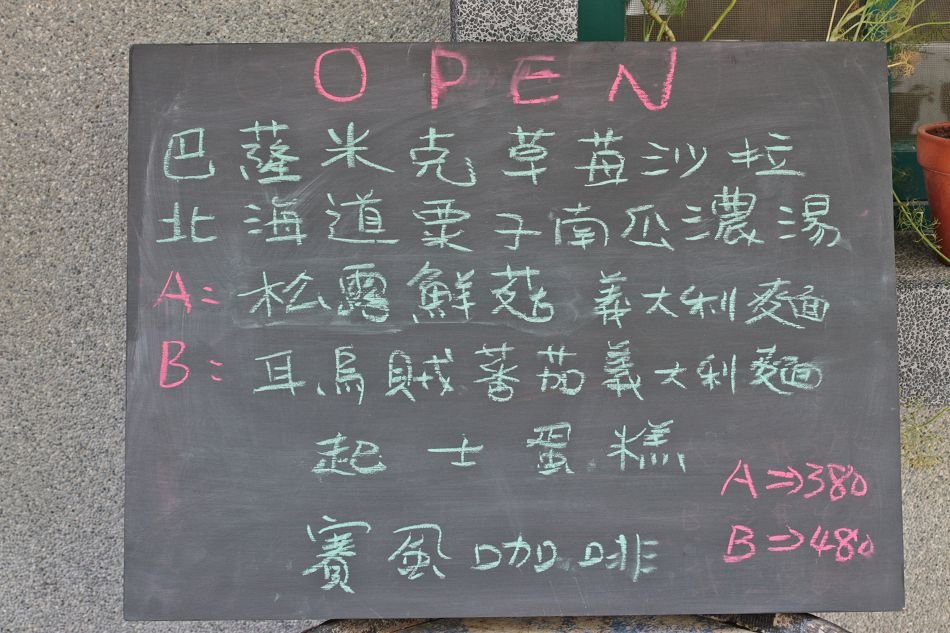 OPEN
巴薩米克草莓沙拉
北海道栗子南瓜濃湯
A: 松露鮮菇義大利麵
B: 耳烏賊蕃茄義大利麵
起士蛋糕
A⇒380
賽風咖啡
B⇒480